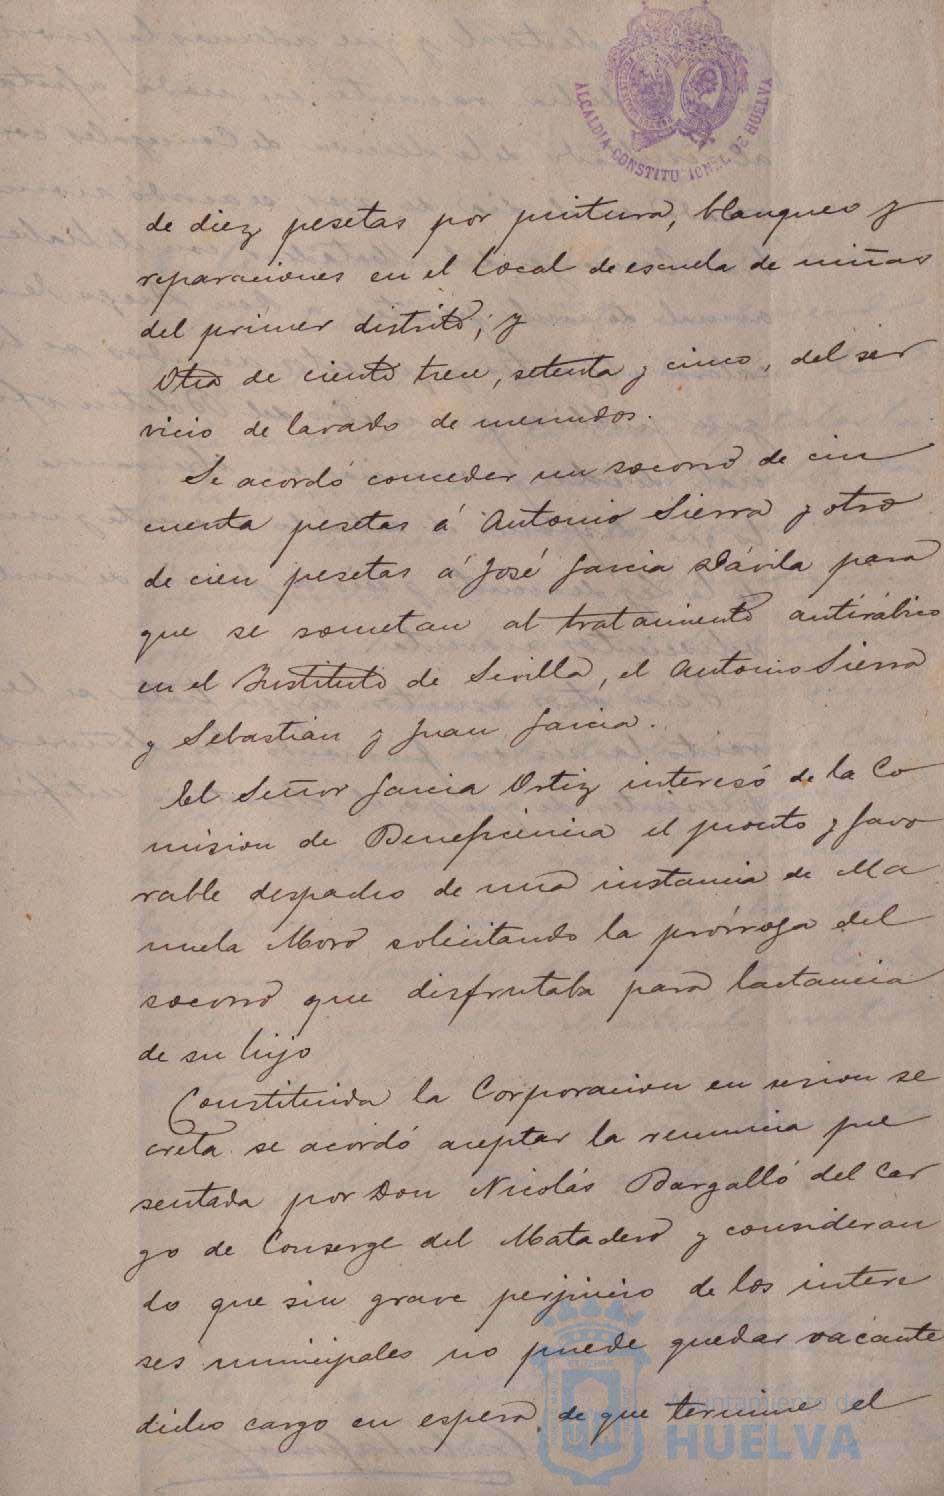 ALCALDIA CONSTITUCIONAL DE HUELVA
de diez pesetas por pintura, blanqueo y
reparaciones en el local de escuela de niñas
del primer distrito; y
Otra de ciento trece, setenta y cinco, del ser
vicio de lavado de menudos.
Se acordó conceder un socorro de cin
cuenta pesetas á Antonio Sierra y otro
de cien pesetas á José Garcia Dávila para
que se sometan al tratamiento antirábico
en el Instituto de Sevilla, el Antonio Sierra
y Sebastián y Juan Garcia.
El Señor Garcia Ortiz interesó de la Co
mision de Beneficencia el pronto y favo
rable despacho de una instancia de Ma
nuela Moro solicitando la prórroga del
socorro que disfrutaba para lactancia
de su hijo
Constituida la Corporacion en sesion se
creta se acordó aceptar la renuncia pre
sentada por Don Nicolás Bargalló del car
go de Conserge del Matadero y consideran
do que sin grave perjuicio de los intere
ses municipales no puede quedar vacante
dicho cargo en espera de que termine el
Ayuntamiento de
HUELVA